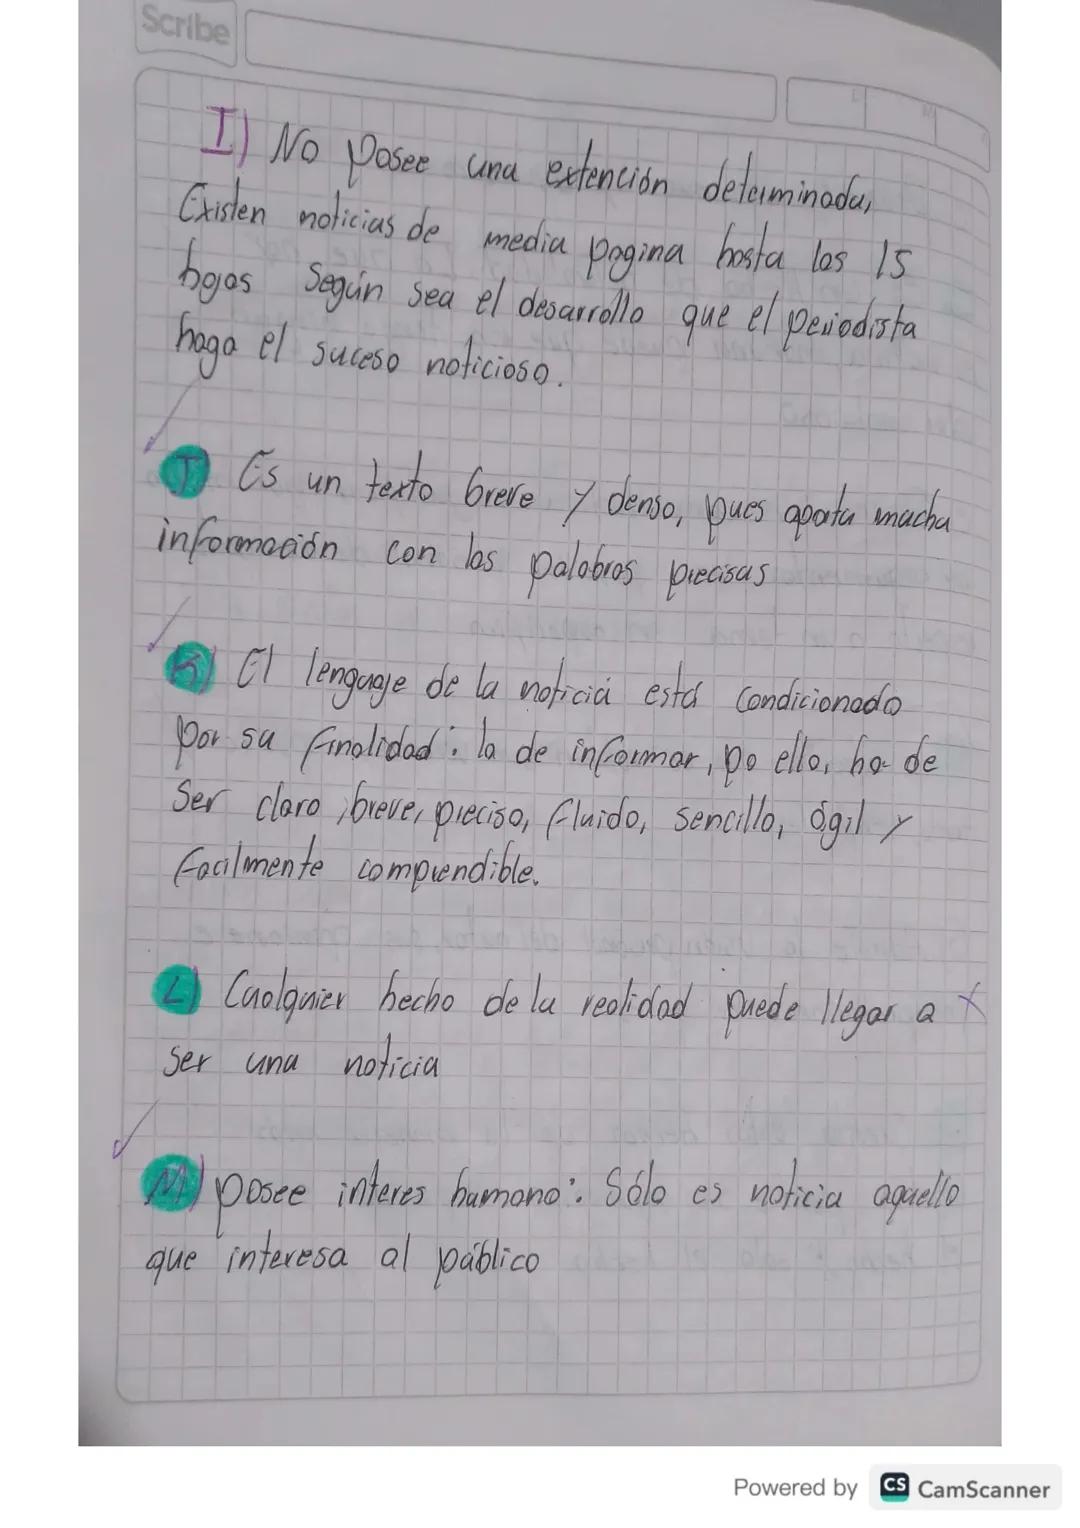 Scribe
I) No posee una extención determinada,
Existen noticias de media pagina hasta las 15
hojas Según sea el desarrollo que el periodista
haga el suceso noticioso.
J) Es un texto breve y denso, pues aporta mucha
información con las palabras precisas
K) El lenguaje de la noticia está condicionado
por su finalidad: la de informar, po ello, ha de
Ser claro, breve, preciso, fluido, sencillo, ágil y
facilmente comprendible.
L) Cualquier hecho de la realidad puede llegar a X
ser una noticia
M) posee interes humano: Sólo es noticia aquello
que interesa al público
Powered by CS CamScanner